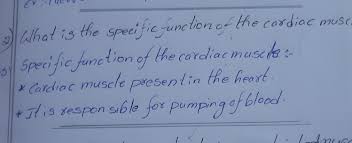 2) What is the specific function of the cardiac musc
Specific function of the cardiac muscles :-
* Cardiac muscle present in the heart.
* It is responsible for pumping of blood.